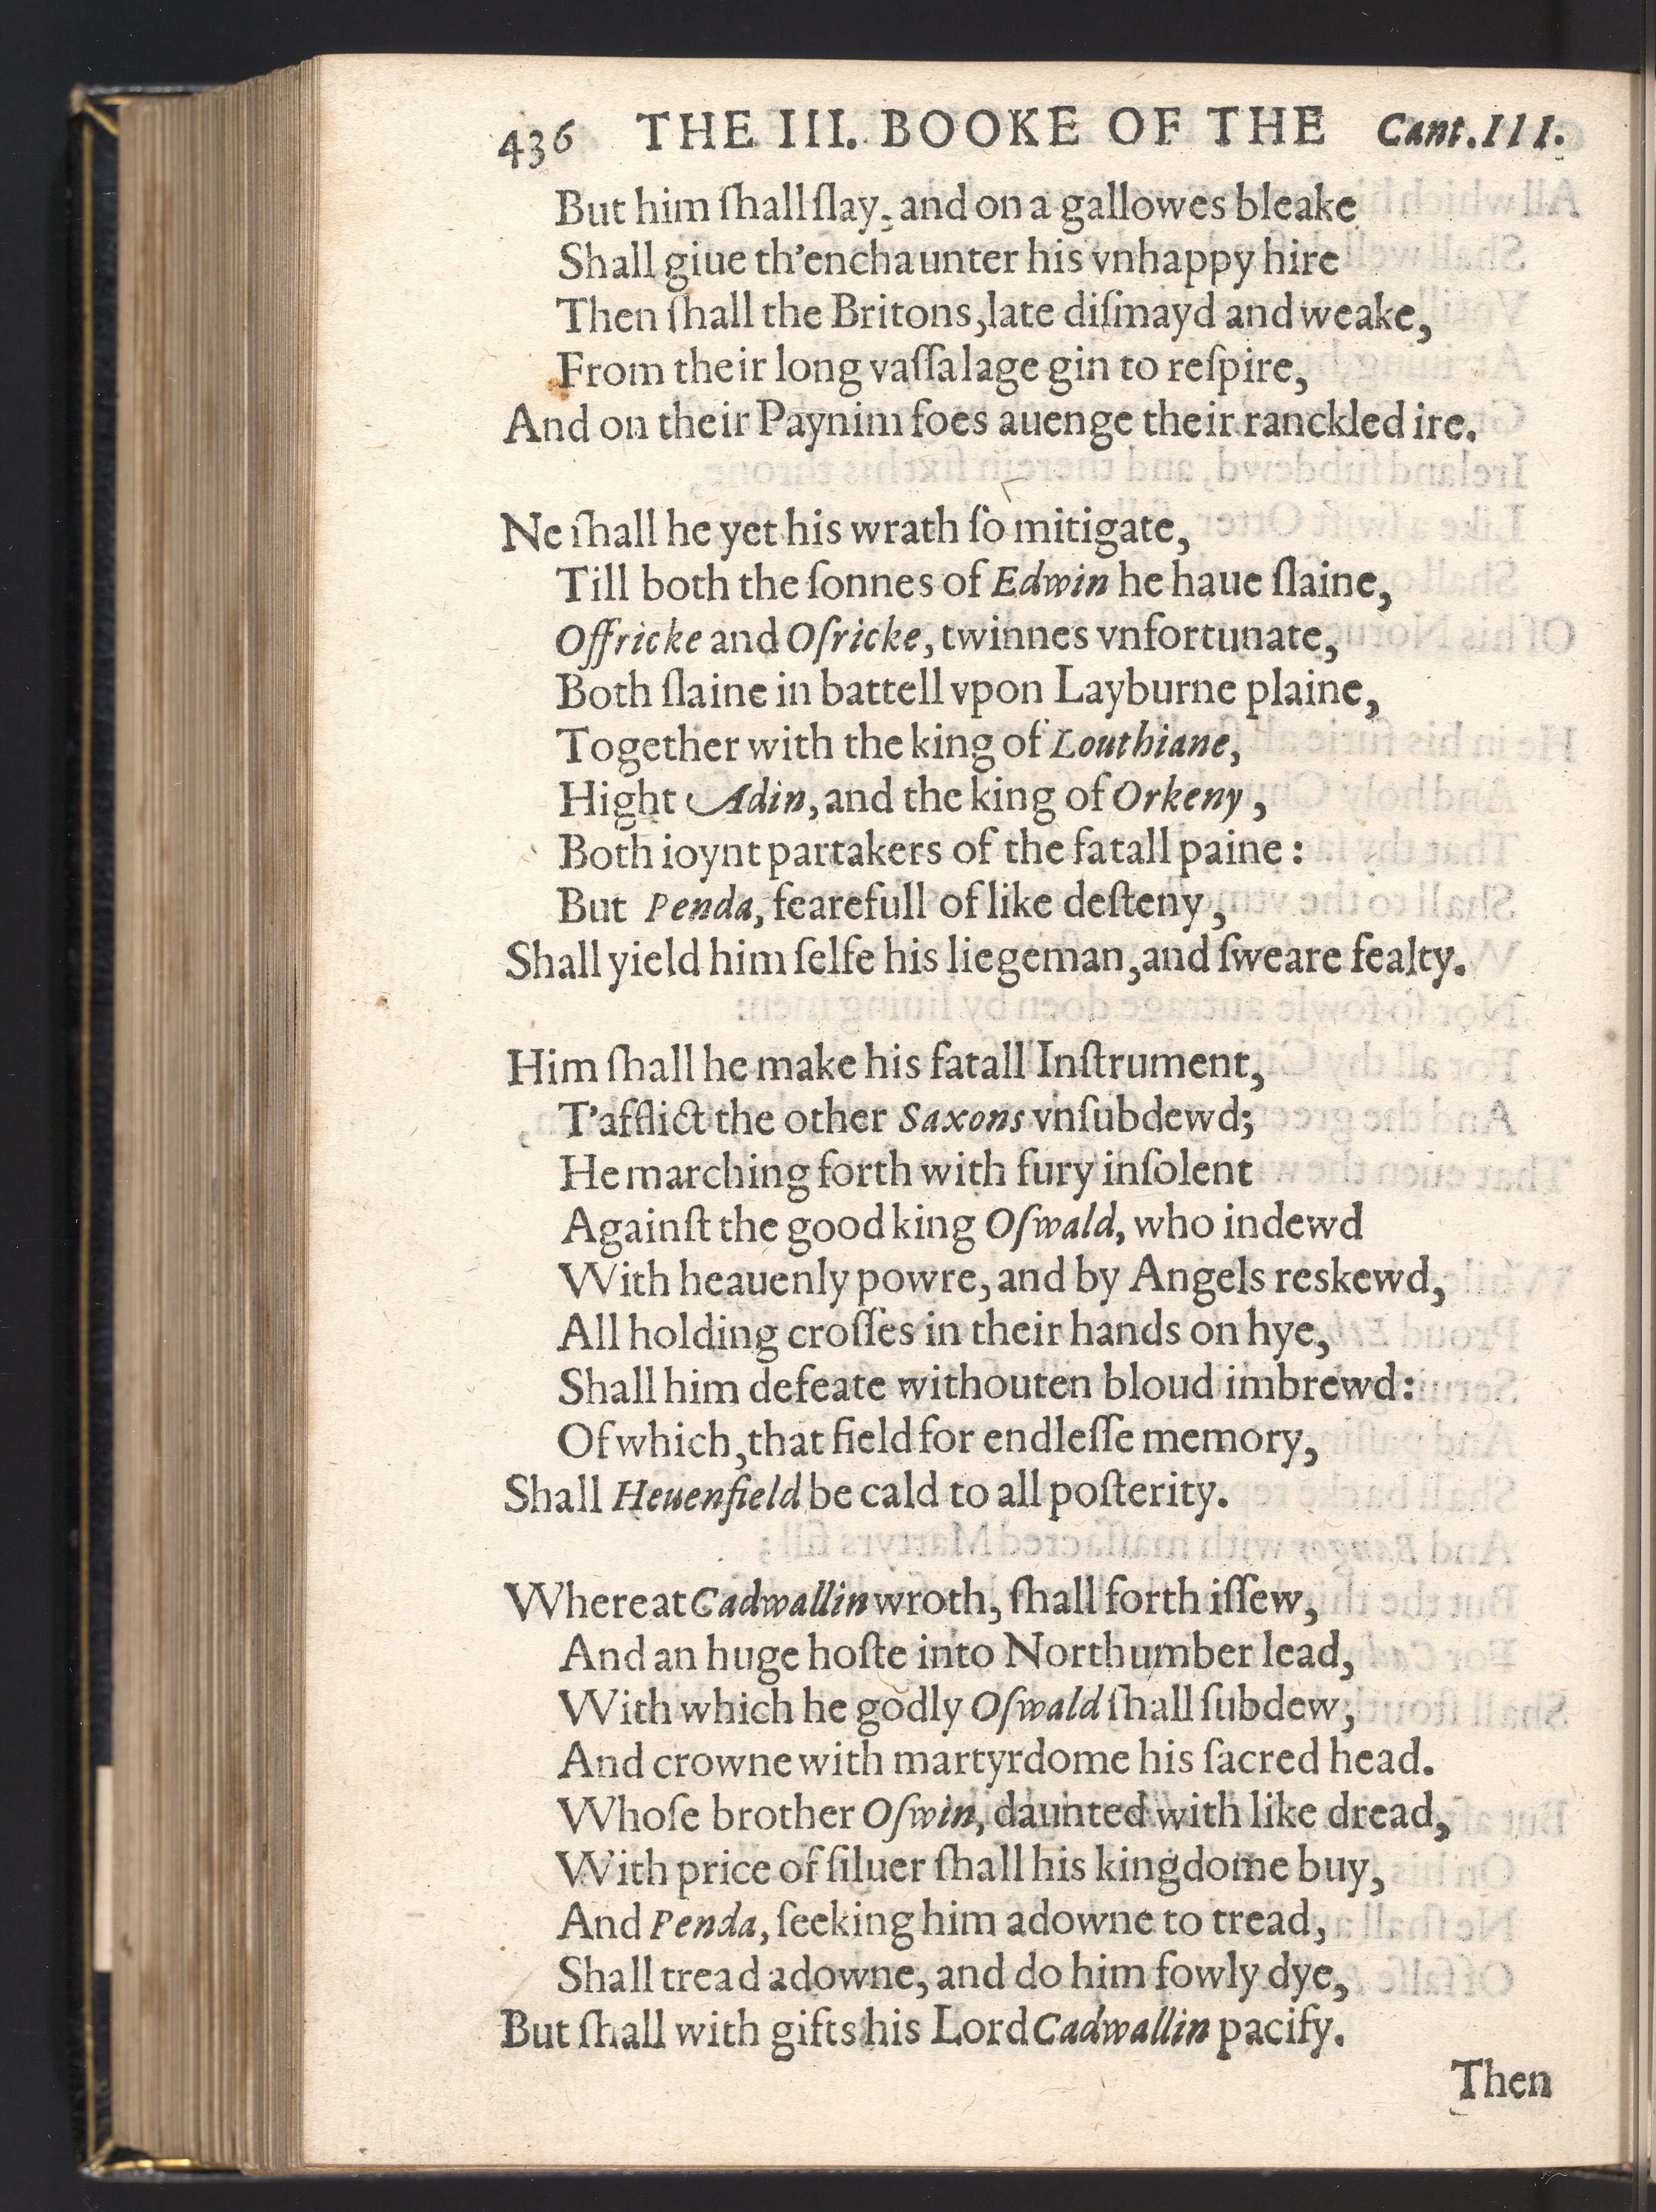 436 THE III. BOOKE OF THE Cant.III.
But him ſhall ſlay, and on a gallowes bleake
Shall giue th'enchaunter his vnhappy hire
Then ſhall the Britons, late diſmayd and weake,
From their long vaſſalage gin to reſpire,
And on their Paynim foes auenge their ranckled ire.
Ne ſhall he yet his wrath ſo mitigate,
Till both the ſonnes of Edwin he haue ſlaine,
Offricke and Oſricke, twinnes vnfortunate,
Both ſlaine in battell vpon Layburne plaine,
Together with the king of Louthiane,
Hight Adin, and the king of Orkeny,
Both ioynt partakers of the fatall paine:
But Penda, fearefull of like deſteny,
Shall yield him ſelfe his liegeman, and ſweare fealty.
Him ſhall he make his fatall Inſtrument,
T'afflict the other Saxons vnſubdewd;
He marching forth with fury inſolent
Againſt the good king Oſwald, who indewd
With heauenly powre, and by Angels reskewd,
All holding croſſes in their hands on hye,
Shall him defeate withouten bloud imbrewd:
Of which, that field for endleſſe memory,
Shall Heuenfield be cald to all poſterity.
Whereat Cadwallin wroth, ſhall forth iſſew,
And an huge hoſte into Northumber lead,
With which he godly Oſwald ſhall ſubdew,
And crowne with martyrdome his ſacred head.
Whoſe brother Oſwin, daunted with like dread,
With price of ſiluer ſhall his kingdome buy,
And Penda, ſeeking him adowne to tread,
Shall tread adowne, and do him fowly dye,
But ſhall with gifts his Lord Cadwallin pacify.
Then